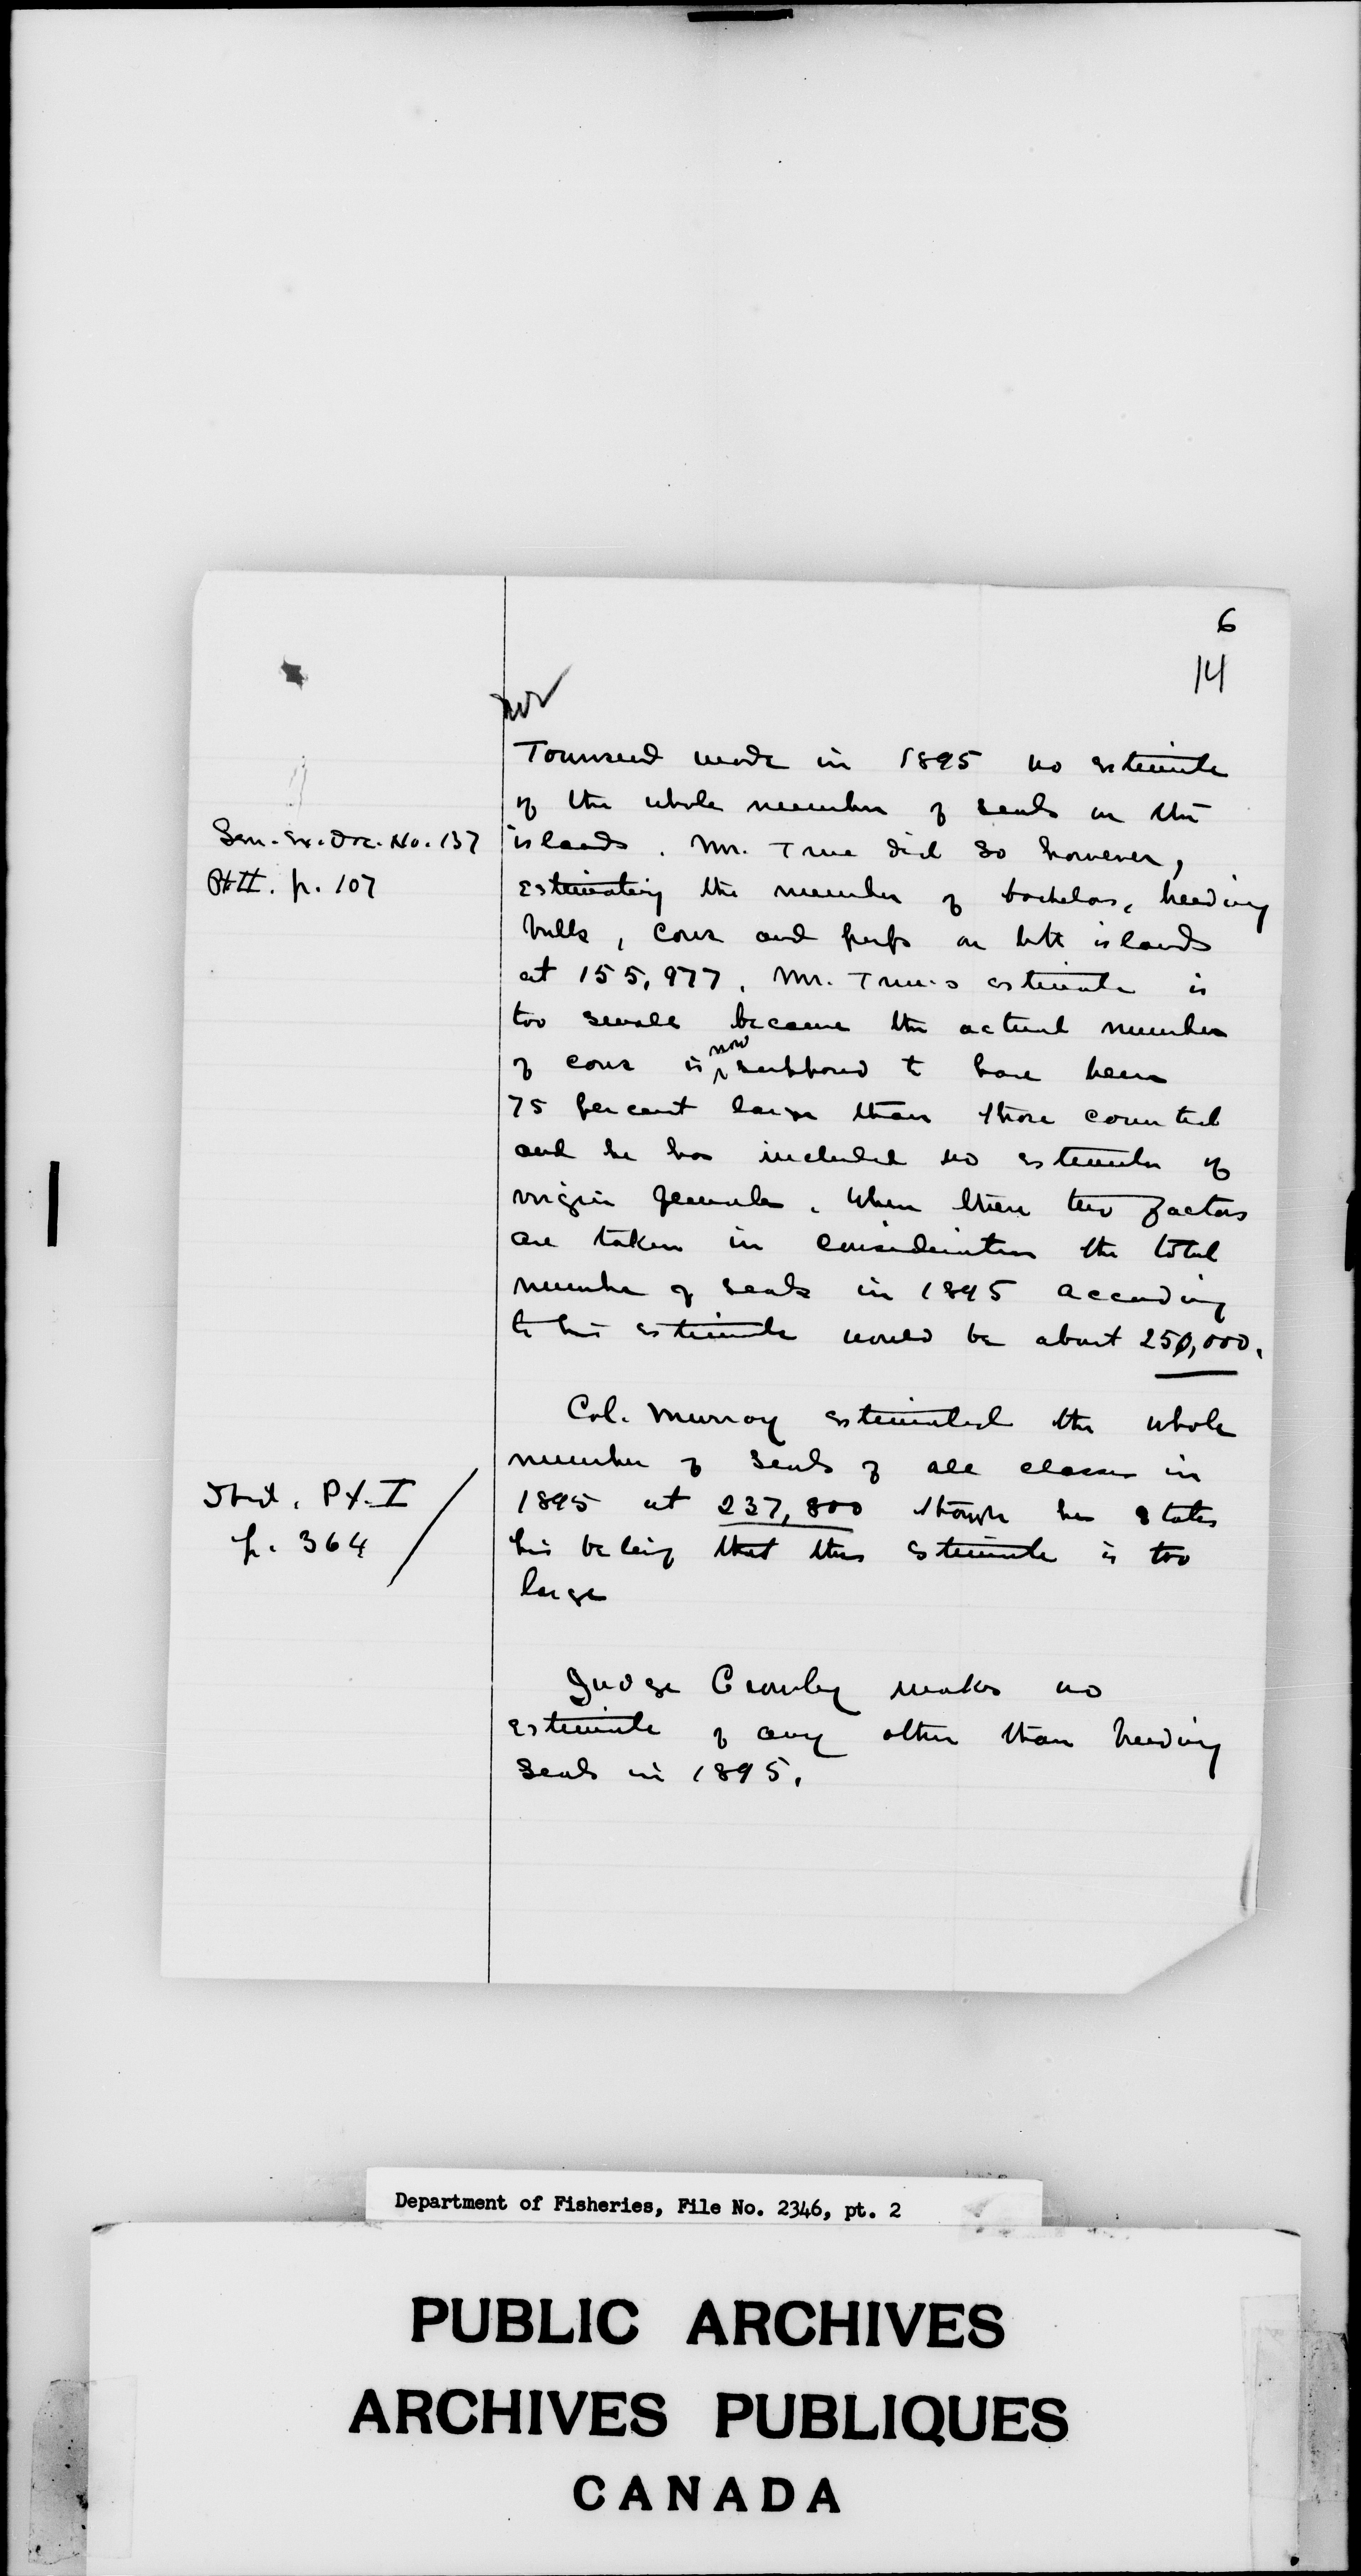 6
14
Townsend made in 1895 no estimate
of the whole number of seals on the
Sen. Ex. Doc. No. 137
islands. Mr. True did so however,
Pt II. p. 107
estimating the number of bachelors, breeding
bulls, cows and pups on both islands
at 155,977. Mr. True's estimate is
too small because the actual number
of cows is now supposed to have been
75 per cent larger than those counted
and he has included no estimate of
virgin females. When these two factors
are taken in consideration the total
number of seals in 1895 according
to his estimate would be about 250,000.
Col. Murray estimated the whole
number of seals of all classes in
Ibid. Pt. I
1895 at 237,800 though he states
p. 364
his belief that this estimate is too
large
Judge Crowley makes no
estimate of any other than breeding
seals in 1895.
Department of Fisheries, File No. 2346, pt. 2
PUBLIC ARCHIVES
ARCHIVES PUBLIQUES
CANADA